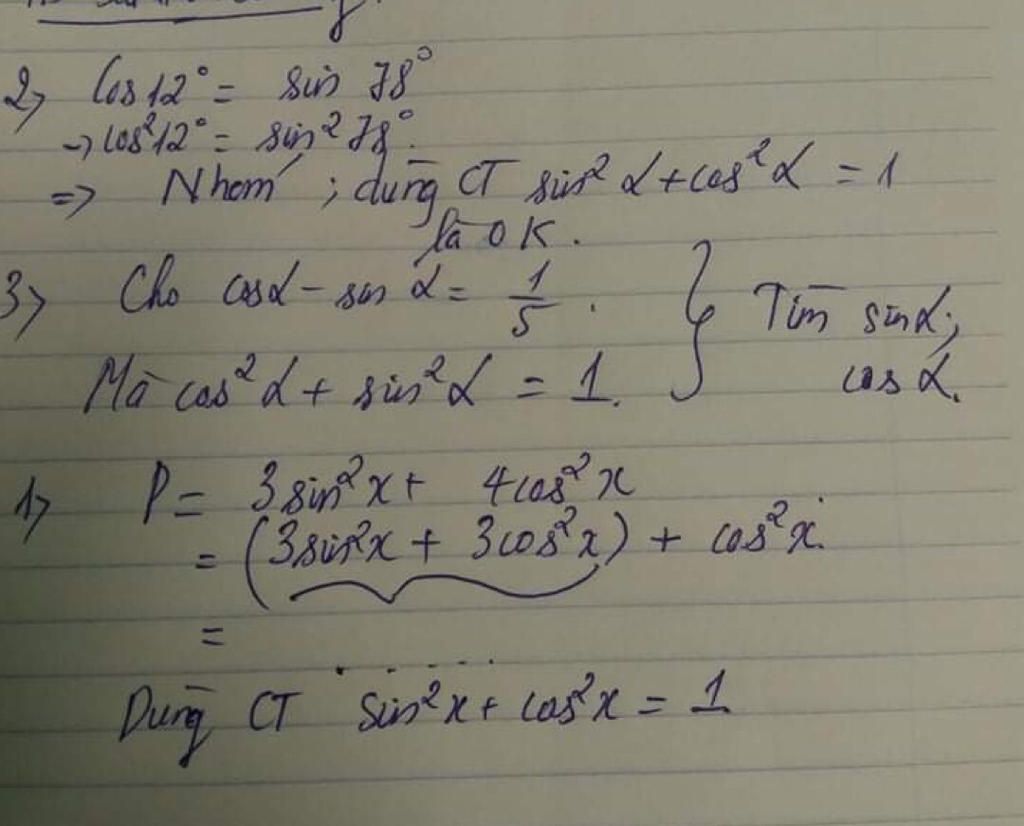 2) Cos12° = sin 78°
→ cos²12° = sin² 78°.
=> Nhóm ; dùng CT sin² α + cos² α = 1
là OK.
3) Cho cosα - sin α = 1/5 .
Mà cos² α + sin² α = 1. } Tìm sinα; cos α.
1) P = 3sin²x + 4cos²x
= (3sin²x + 3cos²x) + cos²x.
= .....
Dùng CT sin²x + cos²x = 1